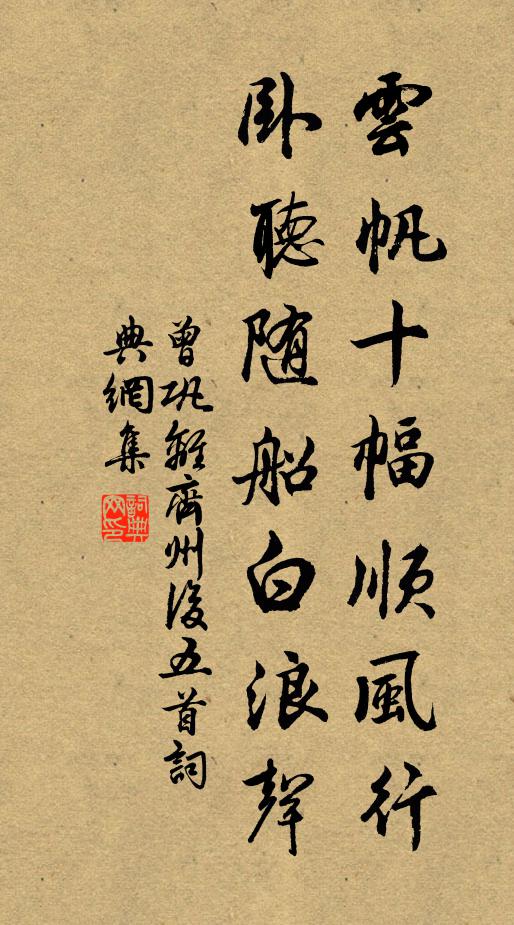 雲帆十幅順風行
卧聽随船白浪聲
曾巩離齊州後五首詞
典網集
詞典网印